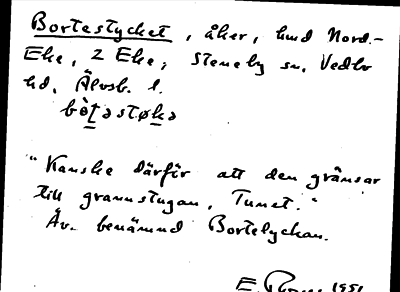 Bortestycket, åker, hmd Nord.-
Eke, 2 Eke, Steneby sn, Vedbo
hd, Älvsb. l.
bòt̲əstøk̲ə
"Kanske därför att den gränsar
till grannstugan, Tunet."
Äv. benämnd Bortelyckan.
E. 1951